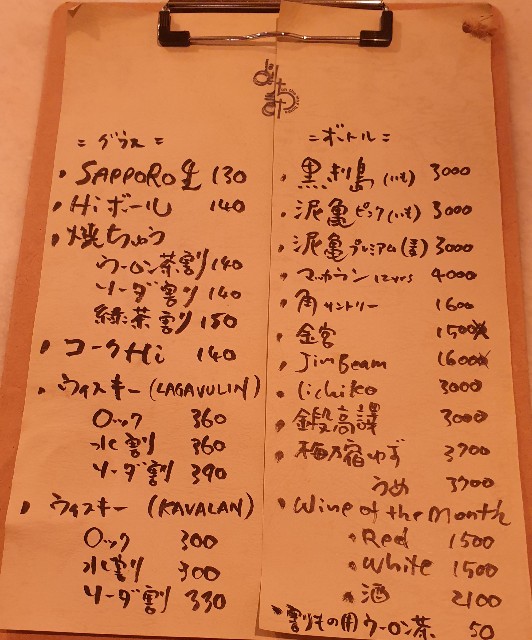 =グラス=
・SAPPORO生 130
・Hiボール 140
・焼ちゅう
ウーロン茶割 140
ソーダ割 140
緑茶割 180
・コークHi 140
・ウィスキー (LAGAVULIN)
ロック 360
水割 360
ソーダ割 390
・ウィスキー (KAVALAN)
ロック 300
水割 300
ソーダ割 330
=ボトル=
・黒利島(いも) 3000
・泥亀ピンク(いも) 3000
・泥亀プレミアム(麦) 3000
・マッカラン 12yrs 4000
・角サントリー 1600
・金宮 1500
・Jim Beam 1600
・iichiko 3000
・鍛高譚 3000
・梅乃宿ゆず 3700
うめ 3700
・Wine of the Month
・Red 1500
・White 1500
・酒 2100
・割りもの用ウーロン茶 50